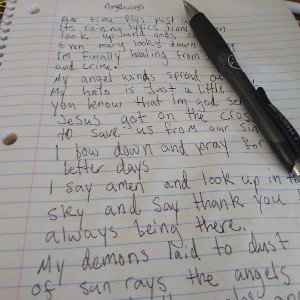 Angelwings
As time flys past
Its raining lyrics from
look up and gods
Even mary looks down
Im finally healing from
and crime.
My angel wings spread
My halo is just a little
You know that Im god sent
Jesus got on the cross
to save us from our sins
I bow down and pray for
better days
I say amen and look up in the
sky and say thank you
always being there.
My demons laid to dust
of sun rays the angels